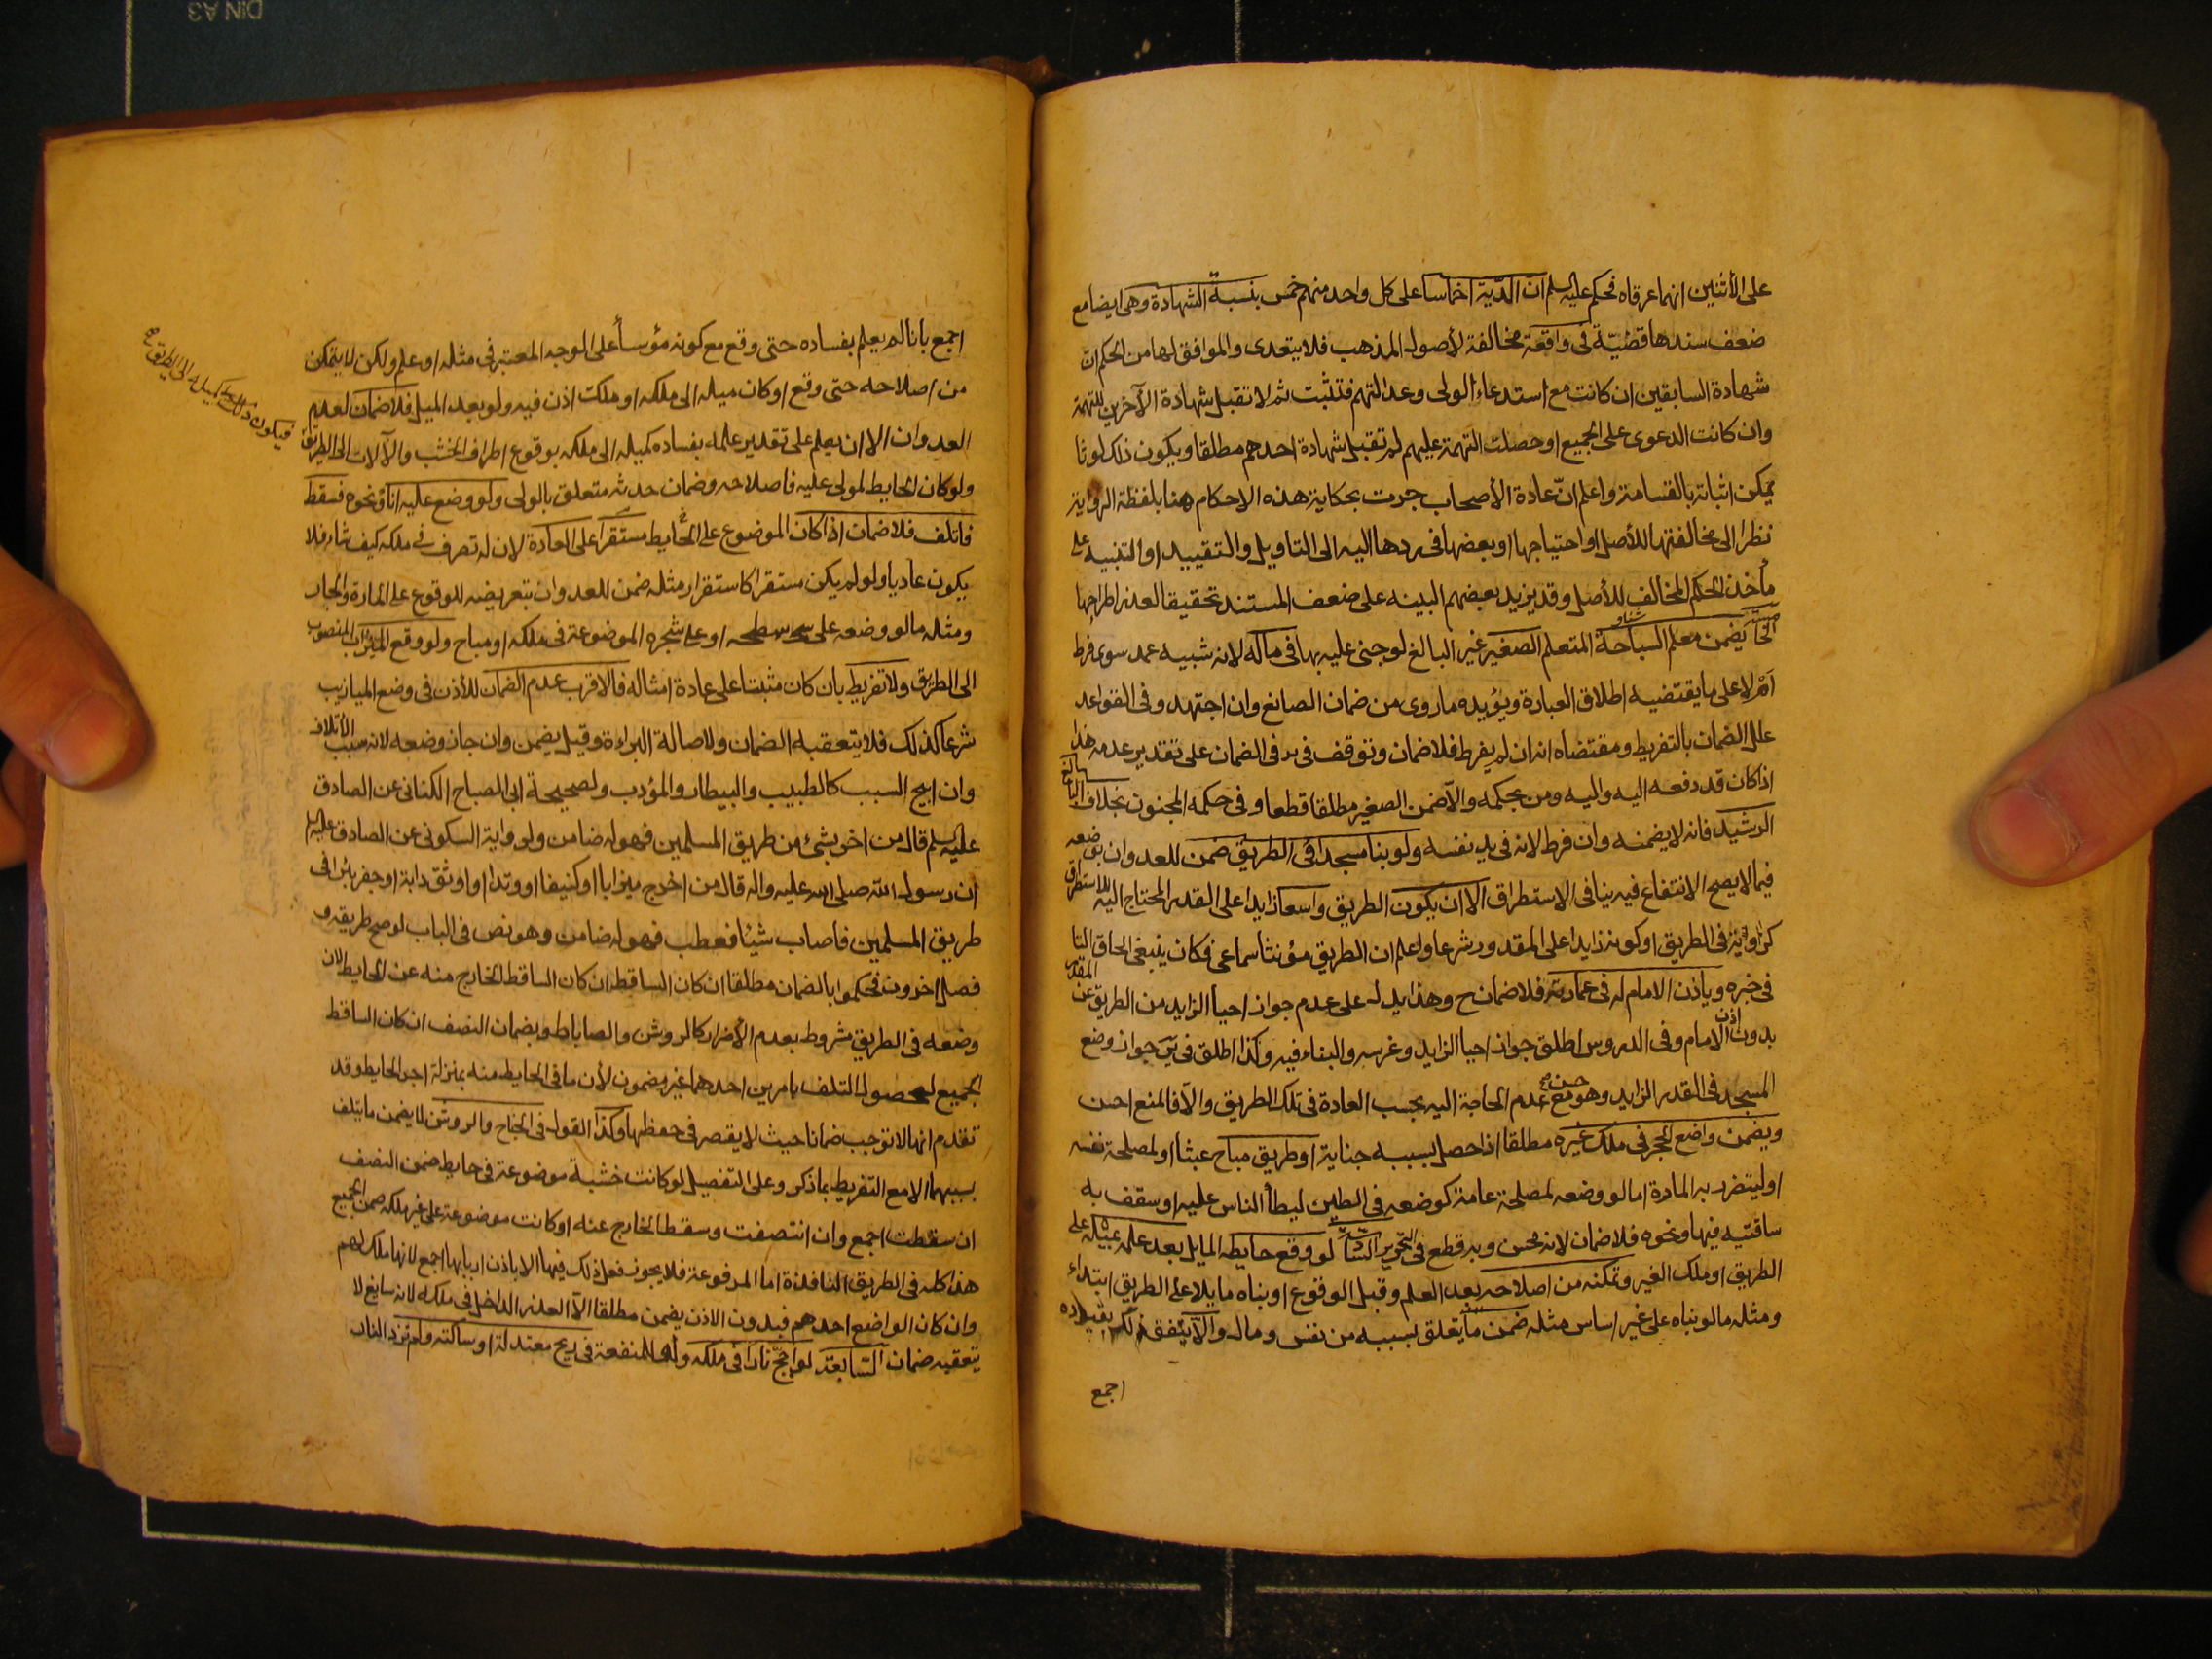 على الأثنين انهما غرقاه فحكم عليه السلم ان الدّية اخماسا على كل واحد منهم خمس بنسبة الشهادة وهى ايضا مع
ضعف سندها قضيّة فى واقعة مخالفة لأصول المذهب فلا يتعدى والموافق لها من الحكم انّ
شهادة السابقين ان كانت مع استدعاء الولى وعدالتهم قبلت ثم لا تقبل شهادة الآخرين للتهمة
وان كانت الدعوى على الجميع او حصلت التهمة عليهم لم تقبل شهادة احدهم مطلقا ويكون ذلك لوثا
يمكن اثباته بالقسامة واعلم انّ عادة الأصحاب جرت بحكاية هذه الاحكام هنا بلفظة الرواية
نظرا الى مخالفتها للأصل او احتياجها او بعضها فى ردها اليه الى التاويل والتقييد او التنبيه على
مأخذ الحكم المخالف للأصل وقد يزيد بعضهم البينه على ضعف المستند تحقيقا لعذر اطراحها
يضمن معلم السباحة المتعلم الصغير غير البالغ لو جنى عليه بها فى ماله لانه شبيه عمد سوى فرط
ام لا على ما يقتضيه اطلاق العبارة ويؤيده ما روى من ضمان الصانع وان اجتهد وفى القواعد
علل الضمان بالتفريط ومقتضاه انه ان لم يفرط فلا ضمان وتوقف فى د فى الضمان على تقدير عدمه هذا
اذا كان قد دفعه اليه وليه ومن بحكمه والّا ضمن الصغير مطلقا قطعا وفى حكمه المجنون بخلاف البالغ
الرشيد فانه لا يضمنه وان فرط لانه فى يد نفسه ولو بنا مسجدا فى الطريق ضمن للعدوان بوضعه
فيما لا يصح الانتفاع فيه بما ينافى الاستطراق الا ان يكون الطريق واسعا زايدا على القدر المحتاج اليه للاستطراق
كزاوية فى الطريق او كونه زايدا على المقدور شرعا واعلم ان الطريق مؤنث سماعى فكان ينبغى الحاق التا
فى خبره وياذن الامام له فى عمارته فلا ضمان ح وهذا يدل على عدم جواز احيا الزايد من الطريق عن المقدر
بدون اذن الامام وفى الدروس اطلق جواز احيا الزايد وغرسه والبناء فيه وكذا اطلق فى ير جواز وضع
المسجد فى القدر الزايد وهو حسن مع عدم الحاجة اليه بحسب العادة فى تلك الطريق والّا فالمنع احسن
ويضمن واضع الحجر فى ملك غيره مطلقا اذا حصل بسببه جناية او طريق مباح عبثا او لمصلحة نفسه
او ليتضرر به المارة اما لو وضعه لمصلحة عامة كوضعه فى الطين ليطأ الناس عليه او سقف به
ساقية فيها ونحوه فلا ضمان لانه محسن وبه قطع فى التحرير لو وقع حايطه المايل بعد علمه بميله على
الطريق او ملك الغير وتمكنه من اصلاحه بعد العلم وقبل الوقوع او بناه مايلا على الطريق ابتداء
ومثله ما لو بناه على غير اساس مثله ضمن ما يتعلق بسببه من نفس ومال والّا يتفق ذلك بقيوده
اجمع
اجمع بأن لم يعلم بفساده حتى وقع مع كونه مؤسسا على الوجه المعتبر فى مثله او علم ولكن لا يتمكن
من اصلاحه حتى وقع او كان ميله الى ملكه او ملك اذن فيه ولو بعد الميل فلا ضمان لعدم
العدوان الا ان يعلم على تقدير علمه بفساده كميله الى ملكه بوقوع اطراف الخشب والآلات الى الطريق
فيكون ذلك كميله الى الطريق صح
ولو كان الحايط لمولى عليه فاصلاحه وضمان حدثه متعلق بالولى ولو وضع عليه اناء ونحوه فسقط
فاتلف فلا ضمان اذا كان الموضوع على الحايط مستقرا على العادة لان له تصرف فى ملكه كيف شاء فلا
يكون عاديا ولو لم يكن مستقرا كاستقرار مثله ضمن للعدوان بتعريضه للوقوع على المارة والجار
ومثله ما لو وضعه على سطحه او على شجره الموضوعة فى ملكه او مباح ولو وقع الميزاب المنصوب
الى الطريق ولا تفريط بأن كان مثبتا على عادة امثاله فالاقرب عدم الضمان للأذن فى وضع الميازيب
شرعا كذلك فلا يتعقبه الضمان ولاصالة البراءة وقيل يضمن وان جاز وضعه لانه سبب الاتلاف
وان ابيح السبب كالطبيب والبيطار والمؤدب ولصحيحة ابى الصباح الكنانى عن الصادق
عليه السلم قال من اضر بشئ من طريق المسلمين فهو له ضامن ولرواية السكونى عن الصادق عليه السلم
ان رسول اللّه صلى الله عليه واله قال من اخرج ميزابا او كنيفا او وتدا او اوثق دابة او حفر بئرا فى
طريق المسلمين فاصاب شيئا فعطب فهو له ضامن وهو نص فى الباب لو صح طريقه و
فصل اخرون فحكموا بالضمان مطلقا ان كان الساقط ان كان الساقط الخارج منه عن الحايط لان
وضعه فى الطريق مشروط بعدم الأضرار كالروشن والصاباط وبضمان النصف ان كان الساقط
الجميع لحصول التلف بامرين احدهما غير مضمون لأن ما فى الحايط منه بمنزلة اجر الحايط وقد
تقدم انها لا توجب ضمانا حيث لا يقصر فى حفظها وكذا القول فى الجناح والروشن لا يضمن ما يتلف
بسببهما الا مع التفريط بما ذكر وعلى التفصيل لو كانت خشبة موضوعة فى حايط ضمن النصف
ان سقطت اجمع وان انتصفت وسقط الخارج عنه او كانت موضوعة على غير ملكه ضمن الجميع
هذا كله فى الطريق النافذة اما المرفوعة فلا يجوز فعل ذلك فيها الا باذن اربابها اجمع لانها ملك لهم
وان كان الواضع احدهم فبدون الاذن يضمن مطلقا الّا العذر الداخل فى ملكه لانه سايغ لا
يتعقبه ضمان السّابعة لو اجّج نارا فى ملكه ولو للمنفعة فى ريح معتدلة او ساكنة ولم تزد النار